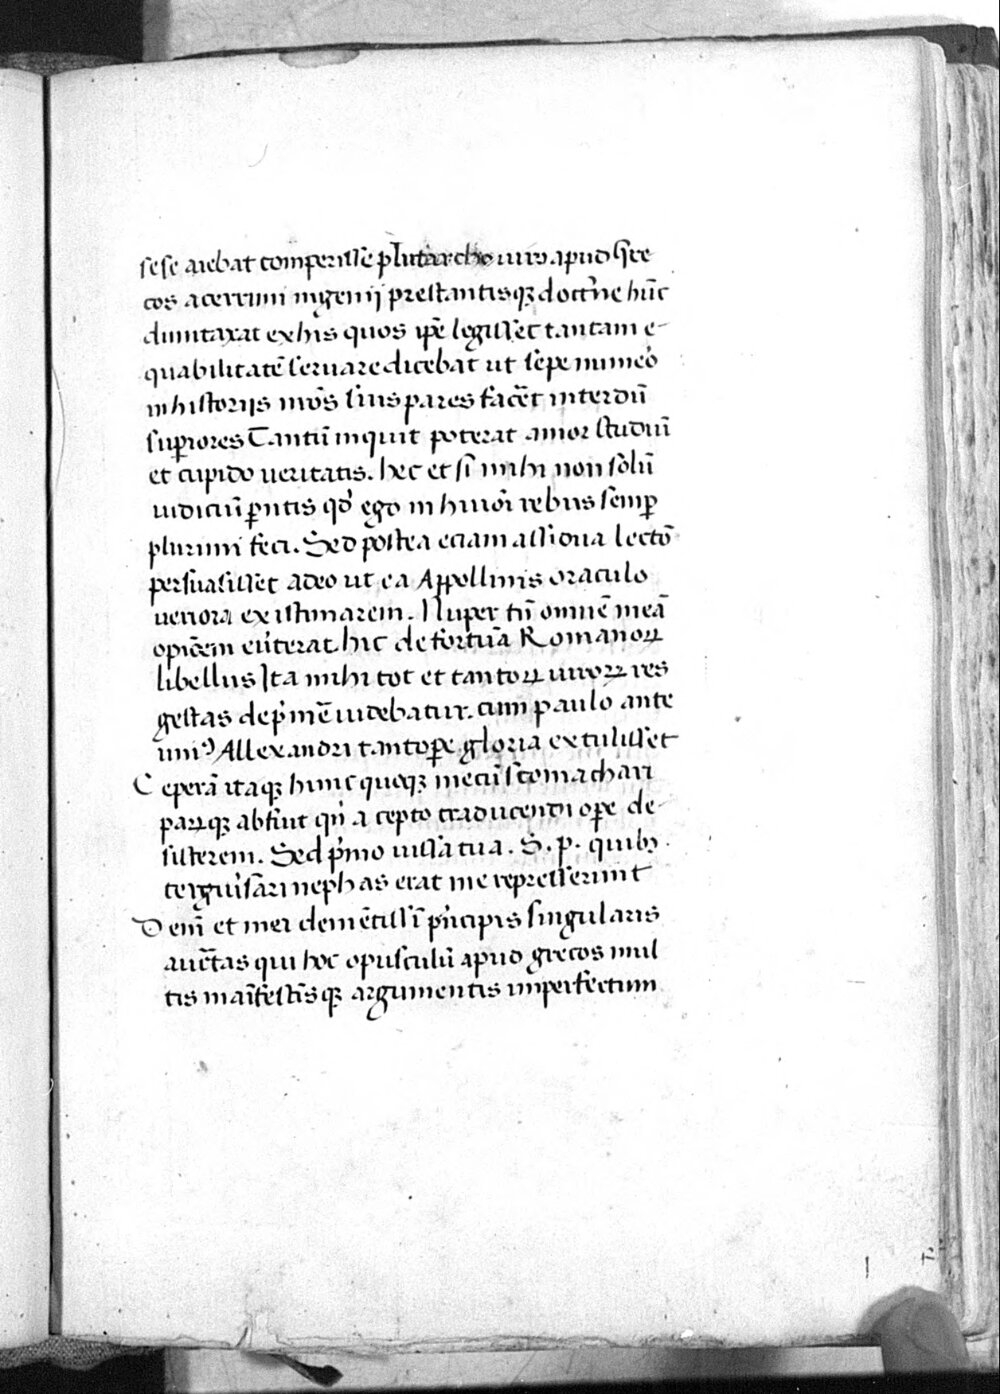 sese aiebat comperisse plutarcho uiro apud gre
cos acerrimi ingenij prestantisqꝫ doctrīe hūc
dumtaxat ex his quos ip̄e legisset tantam e-
quabilitatē seruare dicebat ut sepe mīmeō
in historijs mōs suis pares facēt interdū
suꝑiores Tantū inquit poterat amor studiū
et cupido ueritatis. hec et si mihi non solū
iudiciū ꝑntis qd̓ ego in hmōi rebus semꝑ
plurimi feci. Sed postea eciam assidua lectō
persuasisset adeo ut ea Appollinis oraculo
ueriora existimarem. Nuper tn̄ omnē meā
opiōem eūterat hic de fortūa Romanoꝝ
libellus Ita mihi tot et tantoꝝ uiroꝝ res
gestas dep̄mē uidebatur. cum paulo ante
uniꝰ Allexandri tantoꝑe gloria extulisset
Ceperā itaqꝫ hinc queqꝫ mecū stomachari
paꝝqꝫ abfuit qn̄ a cepto traducendi oꝑe de-
sisterem. Sed p̄mo iussa tua. S. p. quibꝫ
terguīsari nephas erat me represserunt
Deni et mei clemētissī p̄ncipis singularis
auct̄as qui hoc opusculū apud grecos mul
tis māifestīsqꝫ argumentis imperfectum